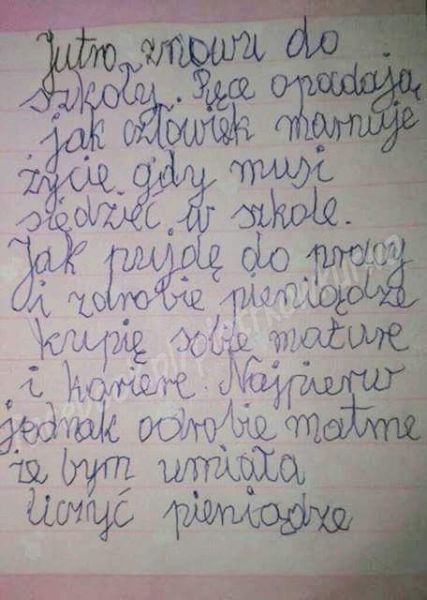 Jutro znowu do
szkoły. Ręce opadają
jak człowiek marnuje
życie gdy musi
siedzieć w szkole.
Jak pujdę do pracy
i zdrobie pieniądze
kupię sobie mature
i kariere. Najpierw
jednak odrobie matme
że bym umiała
liczyć pieniądze